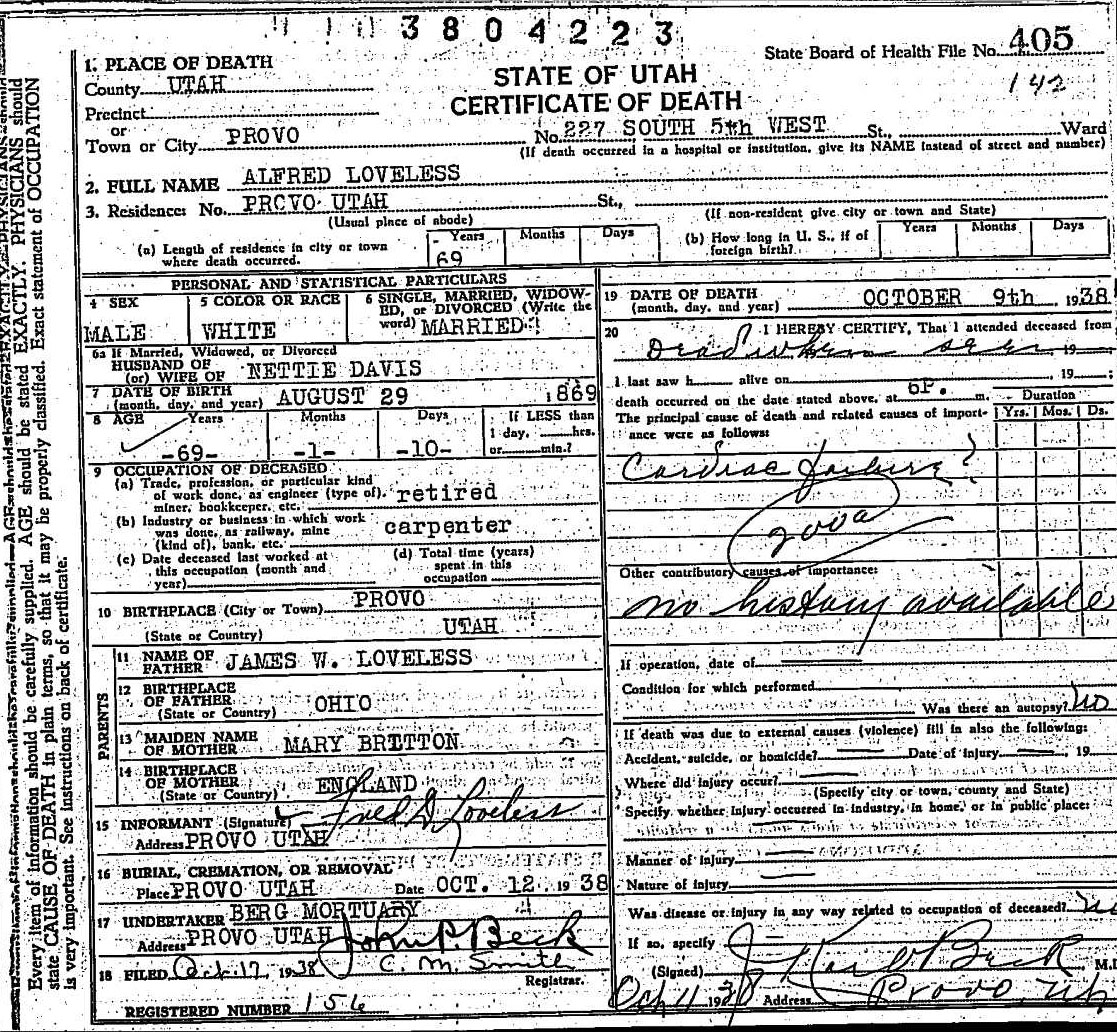 3804223
State Board of Health File No. 405
142
1. PLACE OF DEATH
County UTAH
STATE OF UTAH
CERTIFICATE OF DEATH
Precinct
or
Town or City PROVO No. 227 SOUTH 5th WEST St., Ward
(If death occurred in a hospital or institution, give its NAME instead of street and number)
2. FULL NAME ALFRED LOVELESS
3. Residence: No. PROVO UTAH St.,
(Usual place of abode) (If non-resident give city or town and State)
(a) Length of residence in city or town where death occurred. Years 69 Months Days
(b) How long in U. S., if of foreign birth? Years Months Days
PERSONAL AND STATISTICAL PARTICULARS
4 SEX MALE
5 COLOR OR RACE WHITE
6 SINGLE, MARRIED, WIDOWED, or DIVORCED (Write the word) MARRIED
6a If Married, Widowed, or Divorced
HUSBAND OF
(or) WIFE OF NETTIE DAVIS
7 DATE OF BIRTH
(month, day, and year) AUGUST 29 1869
8 AGE Years Months Days If LESS than
1 day, hrs.
-69- -1- -10- or min.?
9 OCCUPATION OF DECEASED
(a) Trade, profession, or particular kind
of work done, as engineer (type of), retired
miner, bookkeeper, etc.
(b) Industry or business in which work
was done, as railway, mine carpenter
(kind of), bank, etc.
(c) Date deceased last worked at
this occupation (month and
year)
(d) Total time (years)
spent in this
occupation
10 BIRTHPLACE (City or Town) PROVO
(State or Country) UTAH
PARENTS
11 NAME OF
FATHER JAMES W. LOVELESS
12 BIRTHPLACE
OF FATHER OHIO
(State or Country)
13 MAIDEN NAME
OF MOTHER MARY BRITTON
14 BIRTHPLACE
OF MOTHER ENGLAND
(State or Country)
15 INFORMANT (Signature) Fred D. Loveless
Address PROVO UTAH
16 BURIAL, CREMATION, OR REMOVAL
Place PROVO UTAH Date OCT. 12 1938
17 UNDERTAKER BERG MORTUARY
Address PROVO UTAH John P. Beck
18 FILED Oct. 17, 1938 C. M. Smith
Registrar.
REGISTERED NUMBER 156
19 DATE OF DEATH
(month, day, and year) OCTOBER 9th, 1938
20 I HEREBY CERTIFY, That I attended deceased from
Dead when seen, 19
I last saw h alive on , 19 ;
death occurred on the date stated above, at 6P. m.
Duration
The principal cause of death and related causes of importance were as follows: Yrs. Mos. Ds.
Cardiac failure?
200a
Other contributory causes of importance:
no history available
If operation, date of
Condition for which performed
Was there an autopsy? No
If death was due to external causes (violence) fill in also the following:
Accident, suicide, or homicide? Date of injury , 19
Where did injury occur?
(Specify city or town, county and State)
Specify whether injury occurred in industry, in home, or in public place:
Manner of injury
Nature of injury
Was disease or injury in any way related to occupation of deceased? No
If so, specify
(Signed) Beck M.D
Oct 11 1938 Address Provo, Utah
Every item of information should be carefully supplied. AGE should be stated EXACTLY. PHYSICIANS should
state CAUSE OF DEATH in plain terms, so that it may be properly classified. Exact statement of OCCUPATION
is very important. See instructions on back of certificate.